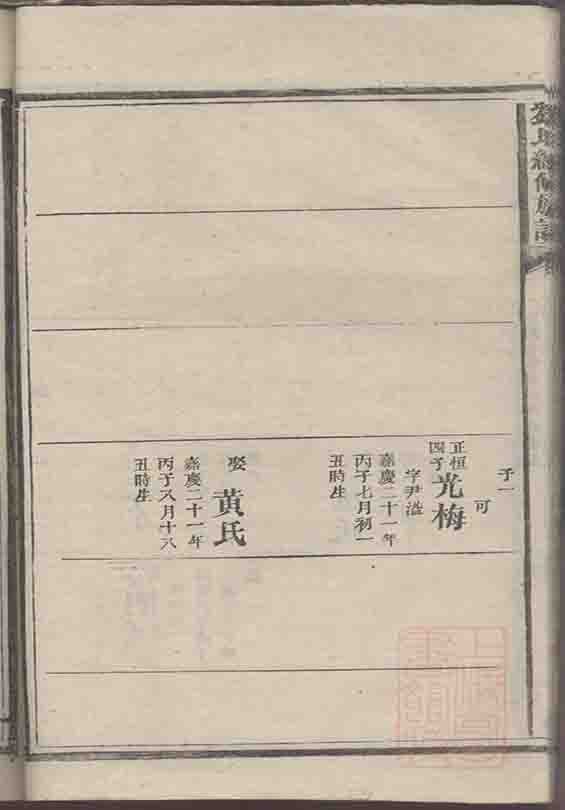 子一
可
正恒
四子
光梅
字尹溢
嘉慶二十一年
丙子七月初一
丑時生
娶
黄氏
嘉慶二十一年
丙子八月十八
丑時生